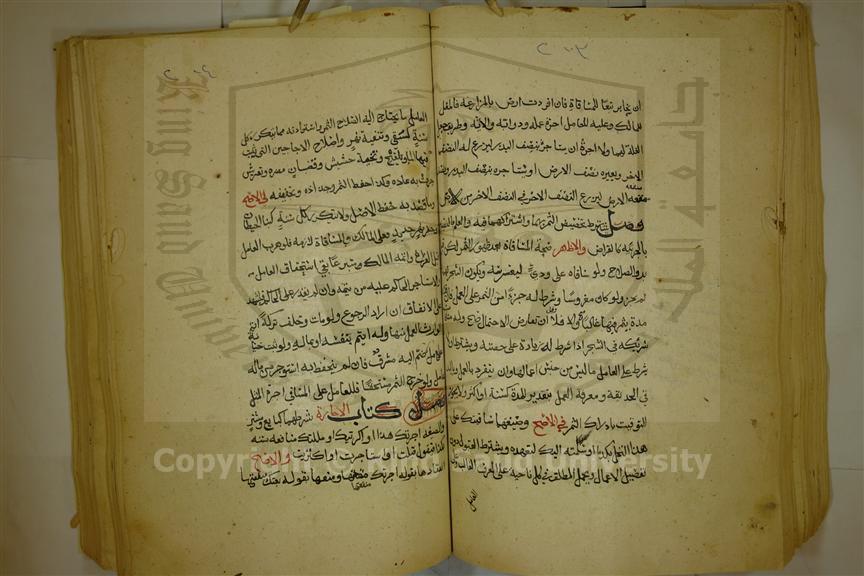 ٢٠٣
ان يخابر تبعا للمساقاة فان افردت ارض بالمزارعة فالمغل
للمالك وعليه للعامل اجرة عمله ودوابه والاته وطريق جعل
الغلة لهما ولا اجرة ان يستاجره بنصف البذر ليزرع له النصف
الاخر ويعيره نصف الارض او يستاجره بنصف البذر ونصف
منفعة الارض ليزرع النصف الاخر في النصف الاخر من الارض
فصل يشترط تخصيص الثمر بهما واشتراكهما فيه والعلم بالنصيبين
بالجزئية كالقراض والاظهر صحة المساقاة بعد ظهور الثمر لكن قبل
بدو الصلاح ولو ساقاه على ودي ليغرسه ويكون الشجر لهما
لم يجز ولو كان مغروسا وشرط له جزءا من الثمر على العمل فان قدر
مدة يثمر فيها غالبا صح والا فلا وقيل ان تعارض الاحتمال صح وله مساقاة
شريكه في الشجر اذا شرط له زيادة على حصته ويشترط ان لا
يشرط على العامل ما ليس من جنس اعمالها وان ينفرد بالعمل وباليد
في الحديقة ومعرفة العمل بتقدير المدة كسنة او اكثر ولا يجوز
التوقيت بادراك الثمر في الاصح وصيغتها ساقيتك على
هذا النخل بكذا او سلمته اليك لتتعهده ويشترط القبول دون
تفصيل الاعمال ويحمل المطلق في كل ناحية على العرف الغالب وعلى
العامل
٢٠٤
العامل ما يحتاج اليه لصلاح الثمر واستزادته مما يتكرر كل
سنة كسقي وتنقية نهر واصلاح الاجاجين التي يثبت
فيها الماء وتلقيح وتنحية حشيش وقضبان مضرة وتعريش
جرت به عادة وكذا حفظ الثمر وجذاذه وتجفيفه في الاصح
وما قصد به حفظ الاصل ولا يتكرر كل سنة كبنا الحيطان
وحفر نهر جديد فعلى المالك والمساقاة لازمة فلو هرب العامل
قبل الفراغ واتمه المالك متبرعا بقي استحقاق العامل
والا استاجر الحاكم عليه من يتمه وان لم يقدر على الحاكم فليشهد
على الانفاق ان اراد الرجوع ولو مات وخلف تركة اتم
الوارث العمل منها وله ان يتم بنفسه او بماله ولو ثبتت خيانة
عامل ضم اليه مشرف فان لم يتحفظ به استوجر من ماله
عامل ولو خرج الثمر مستحقا فللعامل على المساقي اجرة المثل
فصل كتاب الاجارة شرطهما كبايع ومشتر
والصيغة اجرتك هذا او اكريتك او ملكتك منافعه سنة
بكذا فيقول قبلت او استاجرت او اكتريت والاصح
انعقادها بقوله اجرتك منفعتها ومنعها بقوله بعتك منفعتها